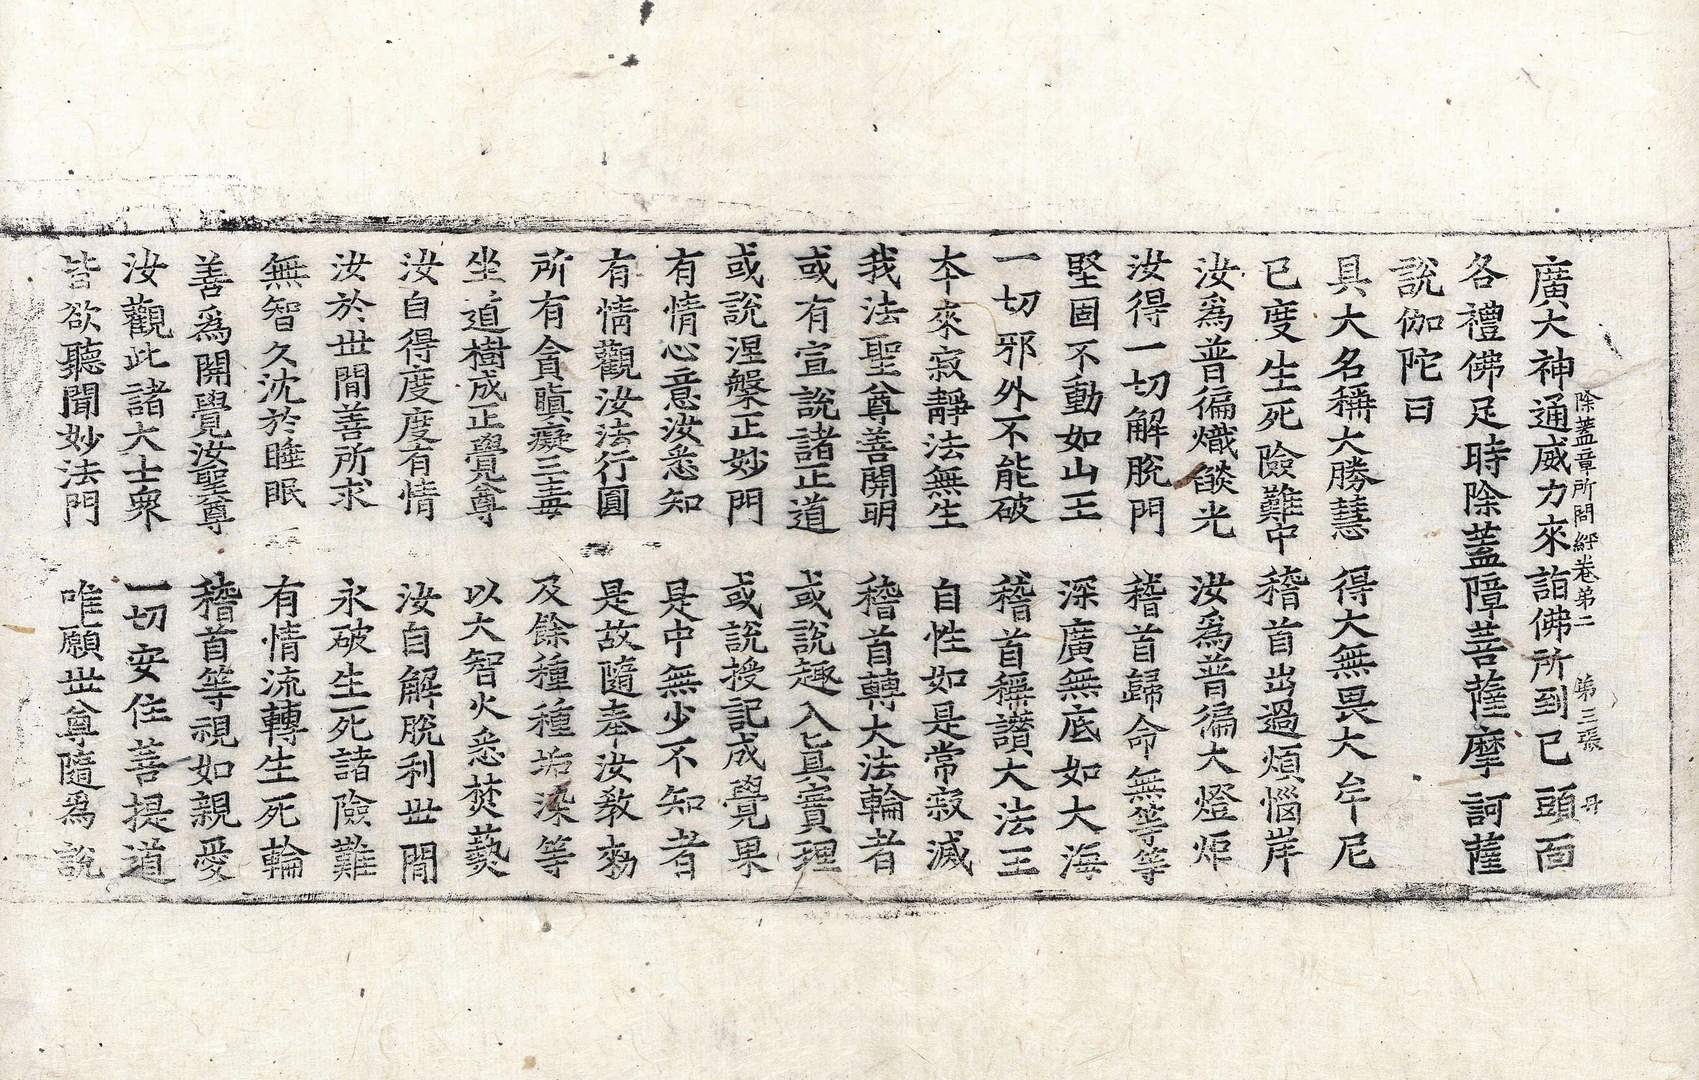 除蓋章所問經卷第二 第三張 丹
廣大神通威力來詣佛所到已頭面
各禮佛足時除蓋障菩薩摩訶薩
說伽陀曰
具大名稱大勝慧 得大無畏大牟尼
已度生死險難中 稽首出過煩惱岸
汝爲普徧熾燄光 汝爲普徧大燈炬
汝得一切解脫門 稽首歸命無等等
堅固不動如山王 深廣無底如大海
一切邪外不能破 稽首稱讃大法王
本來寂靜法無生 自性如是常寂滅
我法聖尊善開明 稽首轉大法輪者
或有宣說諸正道 或說趣入眞實理
或說涅槃正妙門 或說授記成覺果
有情心意汝悉知 是中無少不知者
有情觀汝法行圓 是故隨奉汝敎勑
所有貪瞋癡三毒 及餘種種垢染等
坐道樹成正覺尊 以大智火悉焚爇
汝自得度度有情 汝自解脫利世間
汝於世間善所求 永破生死諸險難
無智久沈於睡眠 有情流轉生死輪
善爲開覺汝聖尊 稽首等視如親愛
汝觀此諸大士衆 一切安住菩提道
皆欲聽聞妙法門 唯願世尊隨爲說